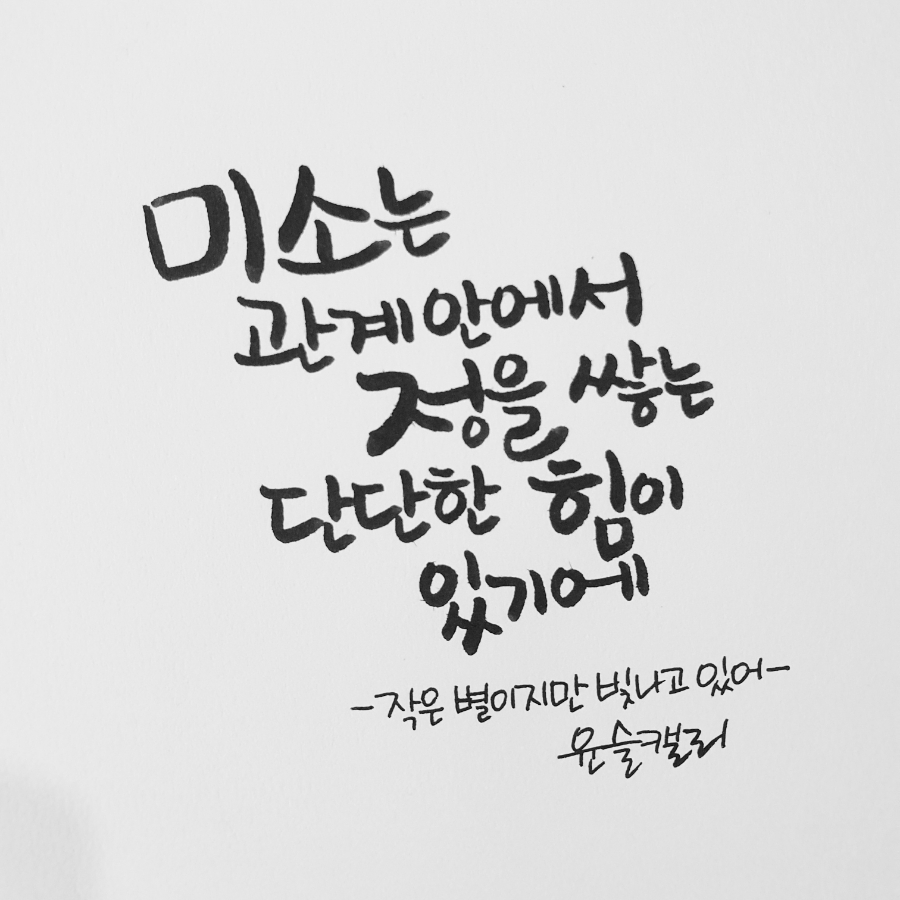 미소는
관계 안에서
정을 쌓는
단단한 힘이
있기에
-작은 별이지만 빛나고 있어-
윤슬캘리